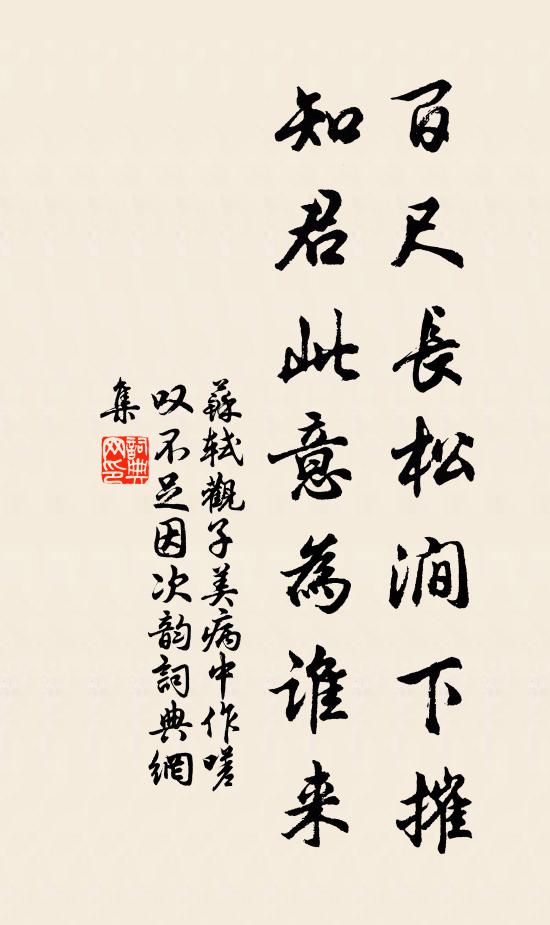 百尺長松澗下摧
知君此意為谁来
蘇轼觀子美病中作嗟
叹不足因次韵詞典網
集
詞典網印